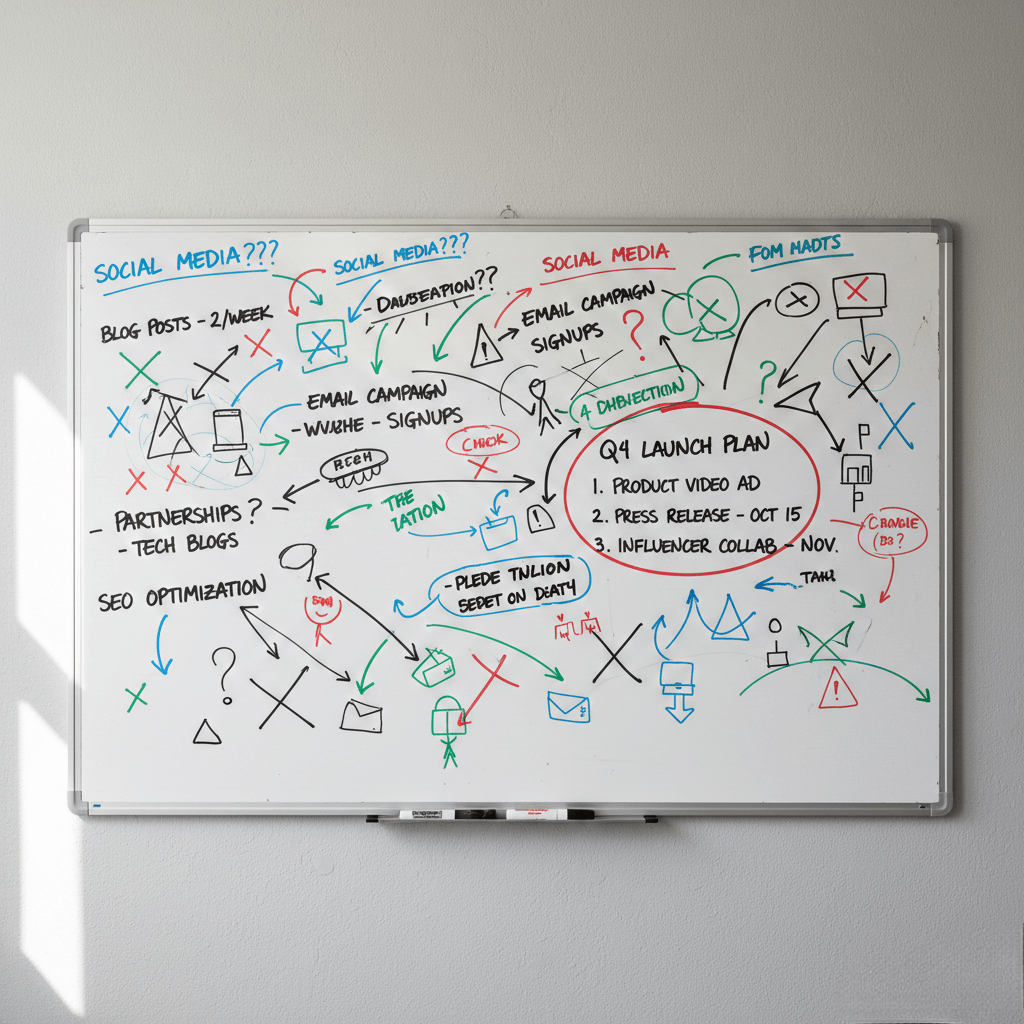 SOCIAL MEDIA???
SOCIAL MEDIA???
SOCIAL MEDIA
FOM MADTS
BLOG POSTS - 2/WEEK
EMAIL CAMPAIGN
SIGNUPS
EMAIL CAMPAIGN
- SIGNUPS
4 DHBIECTION
Q4 LAUNCH PLAN
1. PRODUCT VIDEO AD
2. PRESS RELEASE - OCT 15
3. INFLUENCER COLLAB - NOV.
THE
TATION
- PARTNERSHIPS?
- TECH BLOGS
SEO OPTIMIZATION
- PLEDE TNLION
SEDET ON DEATY